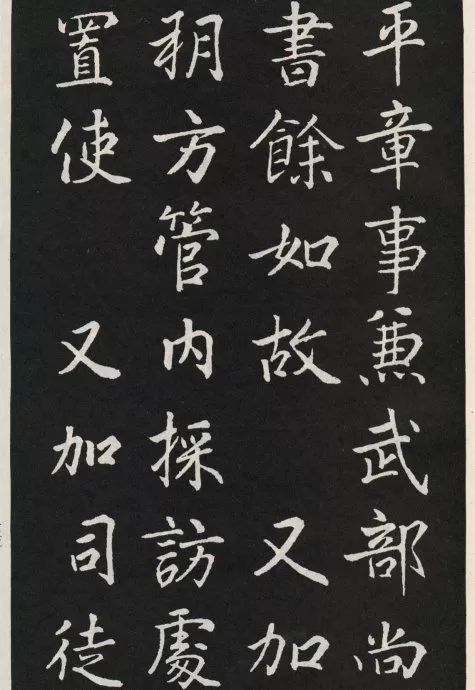 平章事兼武部尚
書餘如故 又加
朔方管内採訪處
置使 又加司徒